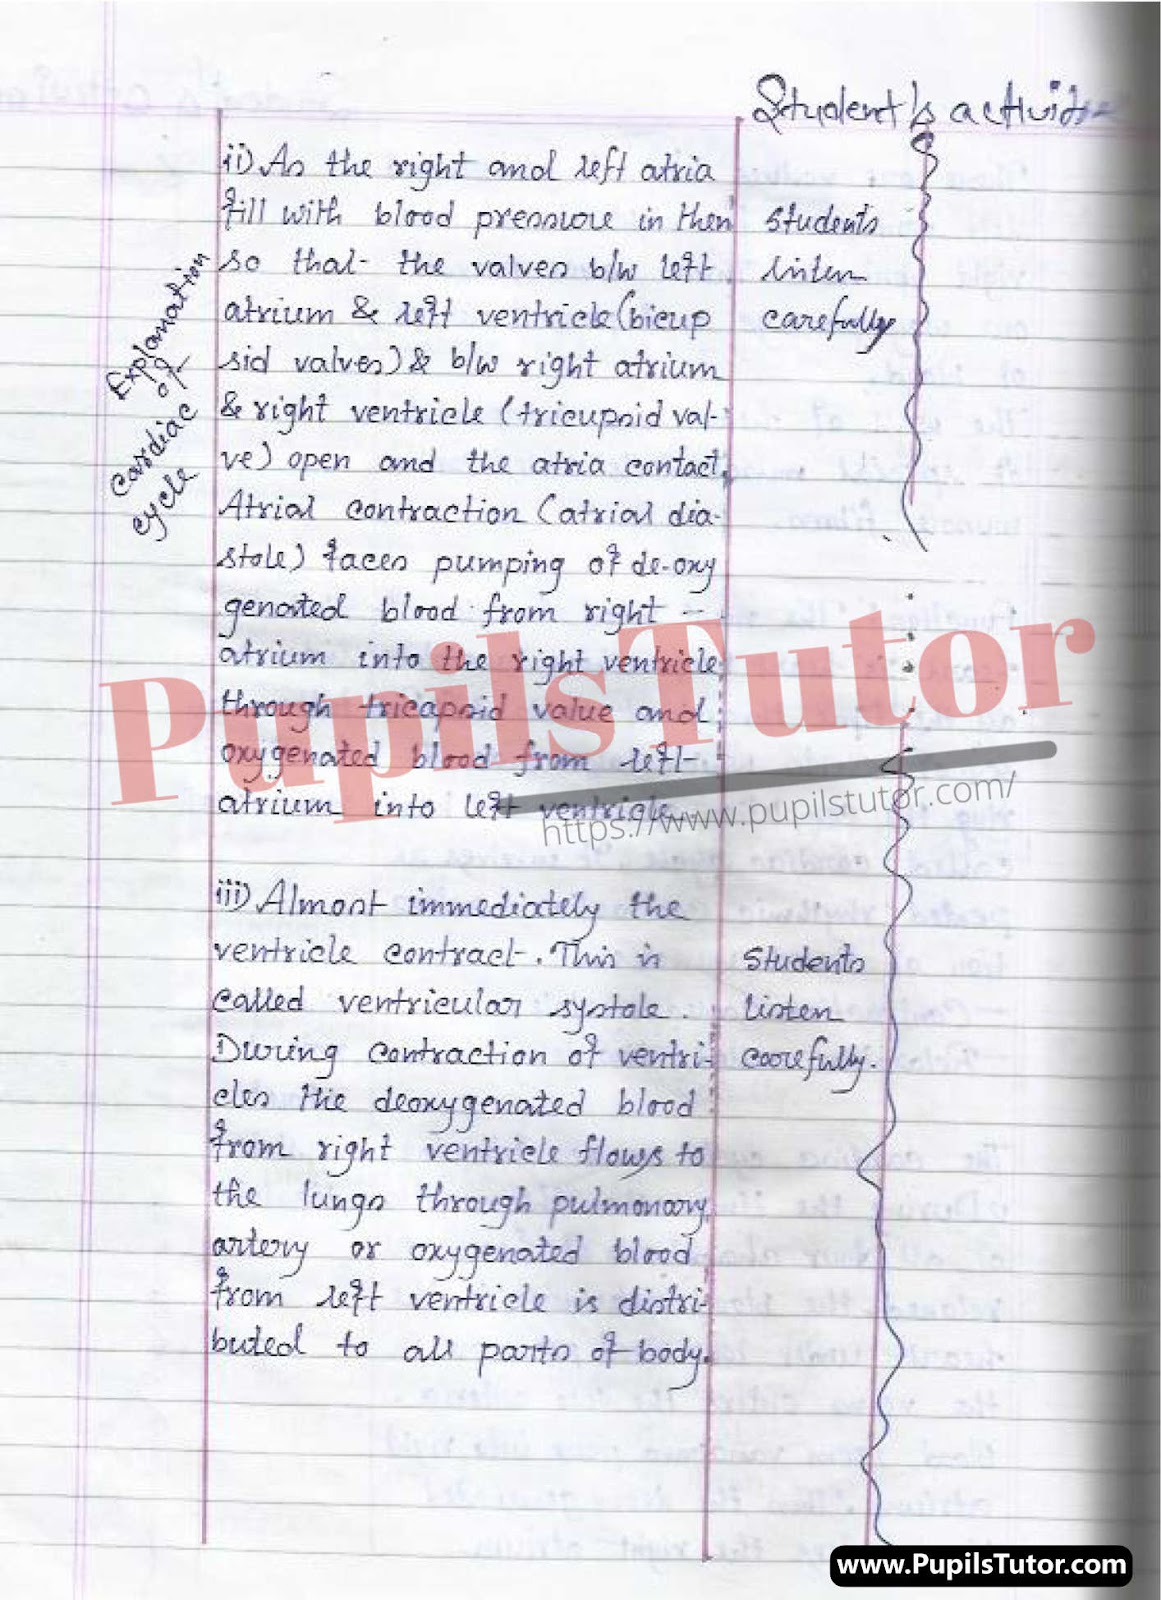 Student's activities
Explanation
of
cardiac
cycle
ii) As the right and left atria
fill with blood pressure in then
so that the valves b/w left
atrium & left ventricle (bicup
sid valves) & b/w right atrium
& right ventricle (tricupsid val-
ve) open and the atria contact.
Atrial contraction (atrial dia-
stole) faces pumping of de-oxy
genated blood from right
atrium into the right ventricle
through tricapsid value and
oxygenated blood from left
atrium into left ventricle
Students
listen
carefully
iii) Almost immediately the
ventricle contract. This is
called ventricular systole.
During contraction of ventri-
cles the deoxygenated blood
from right ventricle flows to
the lungs through pulmonary
artery or oxygenated blood
from left ventricle is distri-
buted to all parts of body.
Students
listen
carefully.
Pupils Tutor
https://www.pupilstutor.com/
www.PupilsTutor.com